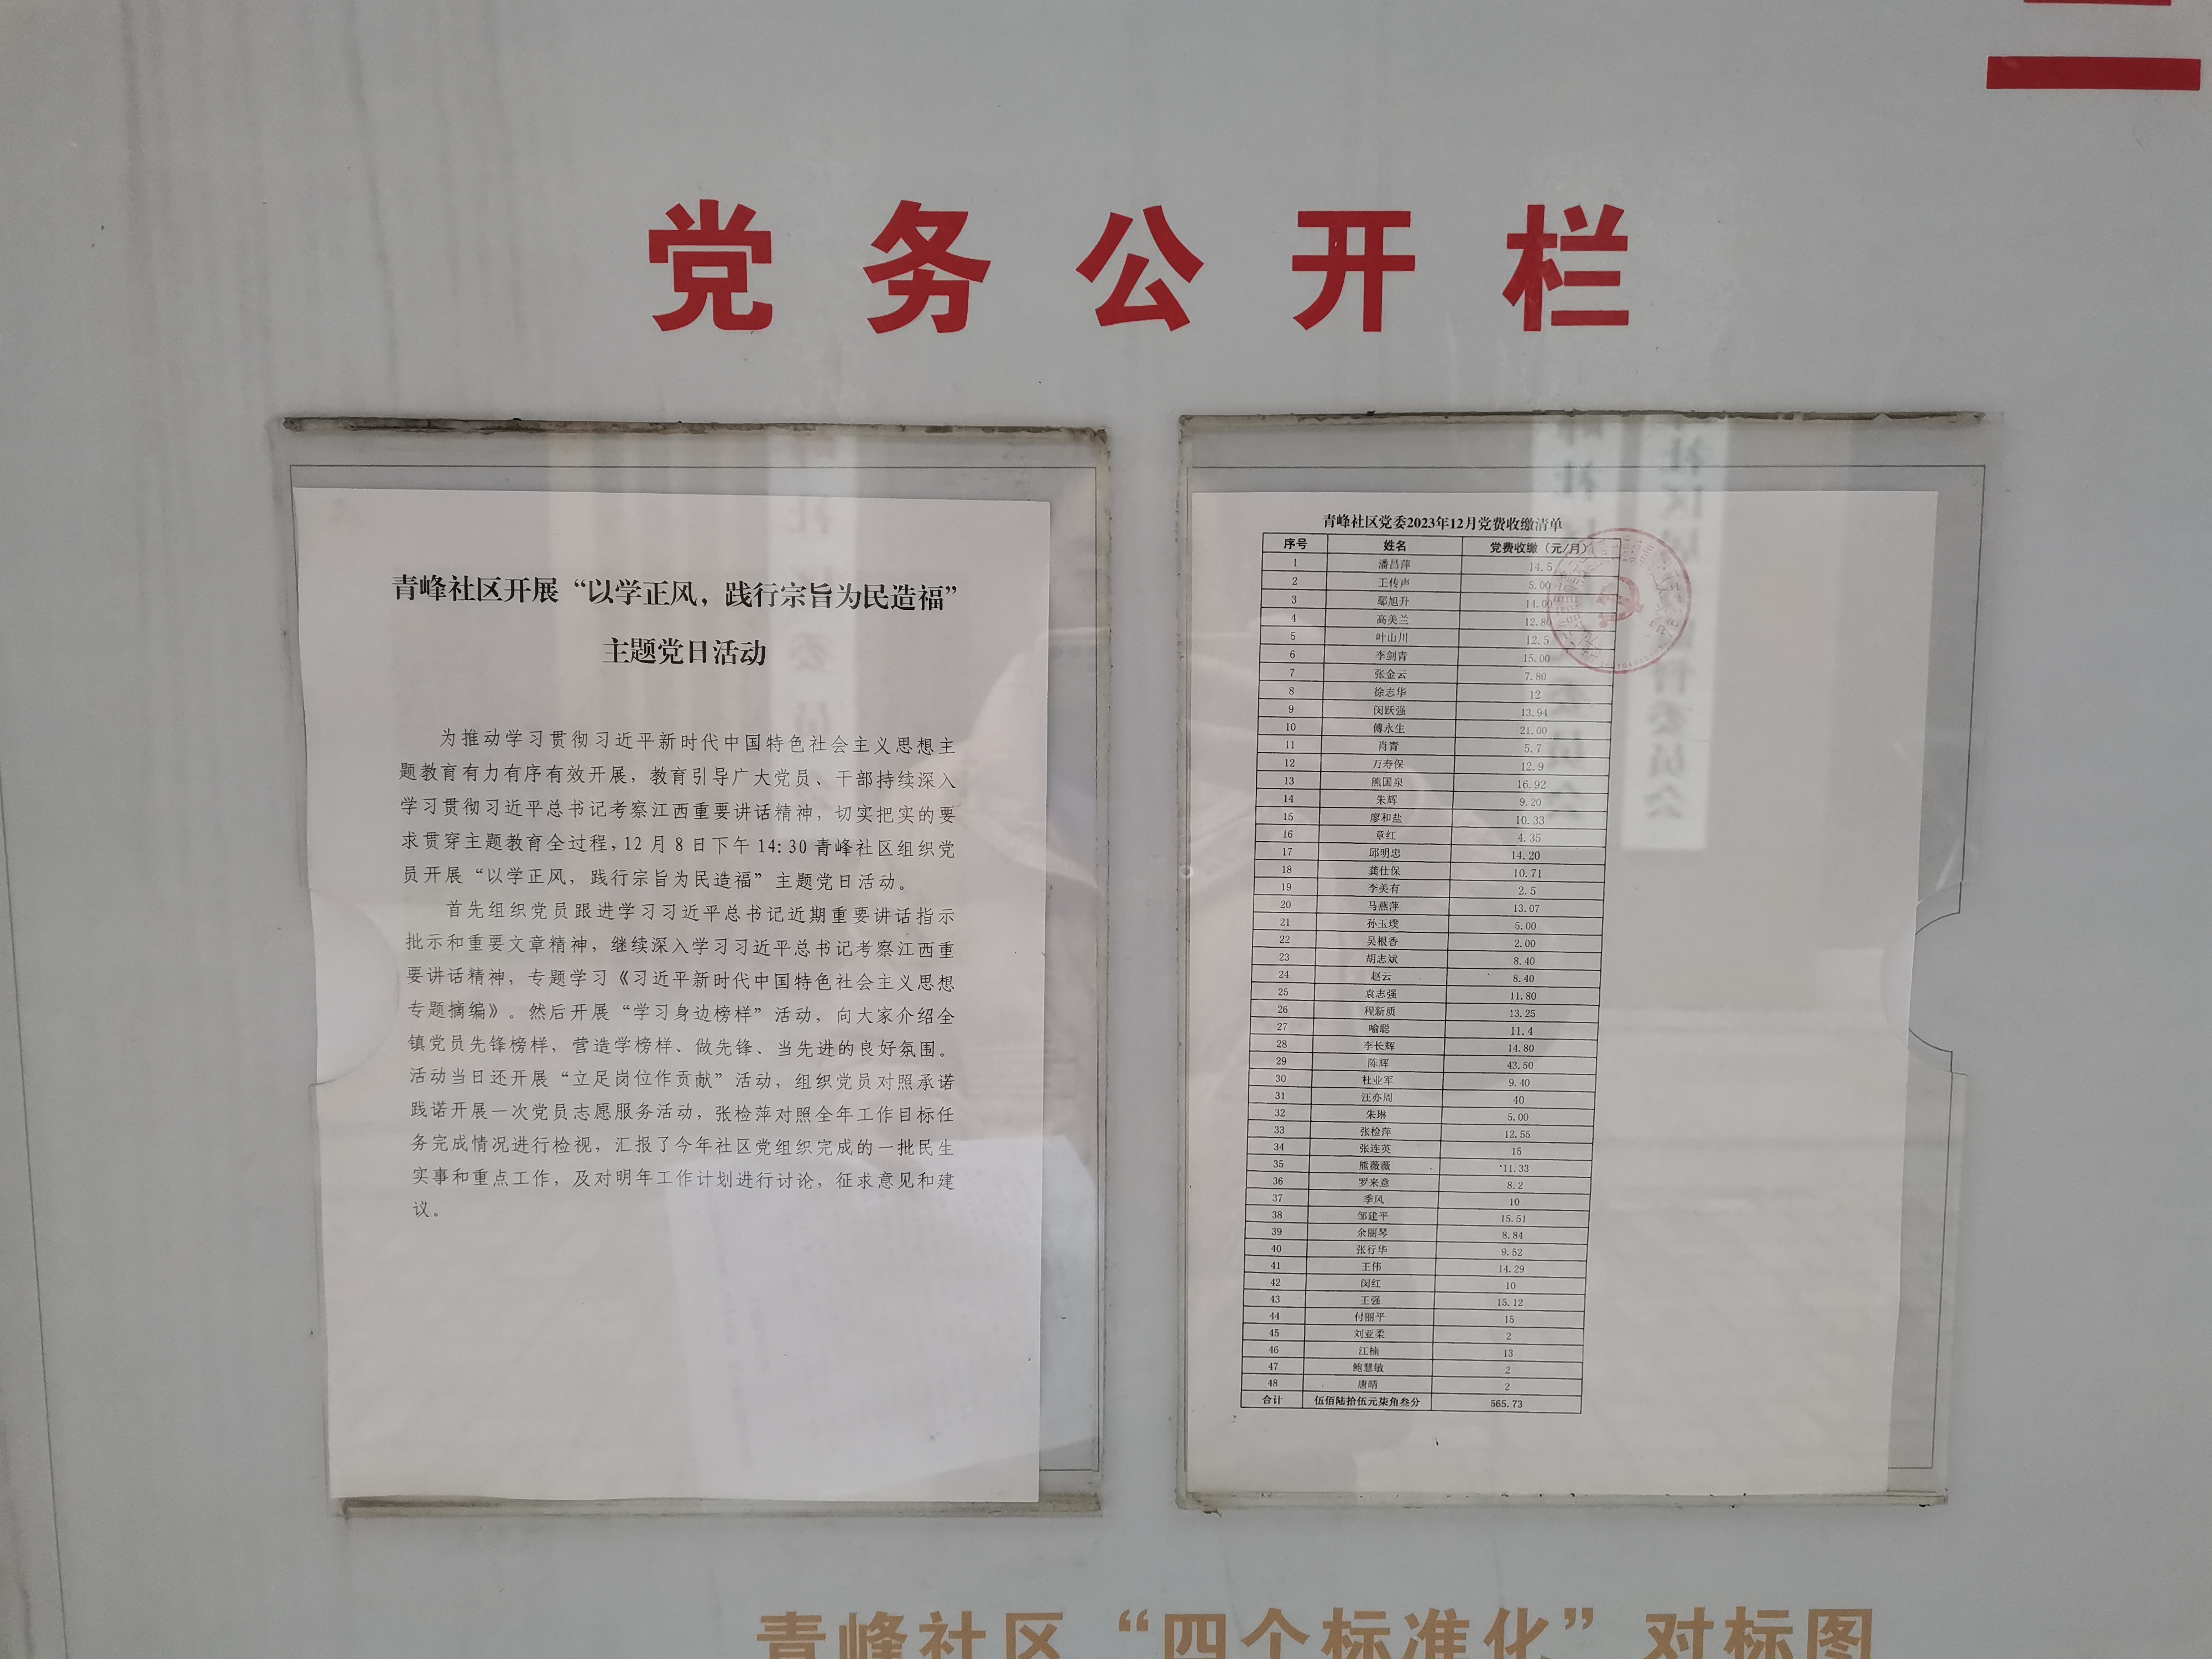 党务公开栏
青峰社区开展“以学正风，践行宗旨为民造福”
主题党日活动
为推动学习贯彻习近平新时代中国特色社会主义思想主
题教育有力有序有效开展，教育引导广大党员、干部持续深入
学习贯彻习近平总书记考察江西重要讲话精神，切实把实的要
求贯穿主题教育全过程，12月8日下午14:30青峰社区组织党
员开展“以学正风，践行宗旨为民造福”主题党日活动。
首先组织党员跟进学习习近平总书记近期重要讲话指示
批示和重要文章精神，继续深入学习习近平总书记考察江西重
要讲话精神，专题学习《习近平新时代中国特色社会主义思想
专题摘编》。然后开展“学习身边榜样”活动，向大家介绍全
镇党员先锋榜样，营造学榜样、做先锋、当先进的良好氛围。
活动当日还开展“立足岗位作贡献”活动，组织党员对照承诺
践诺开展一次党员志愿服务活动，张检萍对照全年工作目标任
务完成情况进行检视，汇报了今年社区党组织完成的一批民生
实事和重点工作，及对明年工作计划进行讨论，征求意见和建
议。
青峰社区党委2023年12月党费收缴清单
序号 姓名 党费收缴（元/月）
1 潘昌萍 14.5
2 王传声 5.00
3 鄢旭升 14.00
4 高美兰 12.80
5 叶山川 12.5
6 李剑青 15.00
7 张金云 7.80
8 徐志华 12
9 闵跃强 13.94
10 傅永生 21.00
11 肖青 5.7
12 万寿保 12.9
13 熊国泉 16.92
14 朱辉 9.20
15 廖和盐 10.33
16 章红 4.35
17 邱明忠 14.20
18 龚仕保 10.71
19 李美有 2.5
20 马燕萍 13.07
21 孙玉璞 5.00
22 吴根香 2.00
23 胡志斌 8.40
24 赵云 8.40
25 袁志强 11.80
26 程新质 13.25
27 喻聪 11.4
28 李长辉 14.80
29 陈辉 43.50
30 杜业军 9.40
31 汪亦周 40
32 朱琳 5.00
33 张检萍 12.55
34 张连英 15
35 熊薇薇 11.33
36 罗来意 8.2
37 季风 10
38 邹建平 15.51
39 余丽琴 8.84
40 张行华 9.52
41 王伟 14.29
42 闵红 10
43 王强 15.12
44 付丽平 15
45 刘亚柔 2
46 江楠 13
47 鲍慧敏 2
48 唐晴 2
合计 伍佰陆拾伍元柒角叁分 565.73
青峰社区“四个标准化”对标图